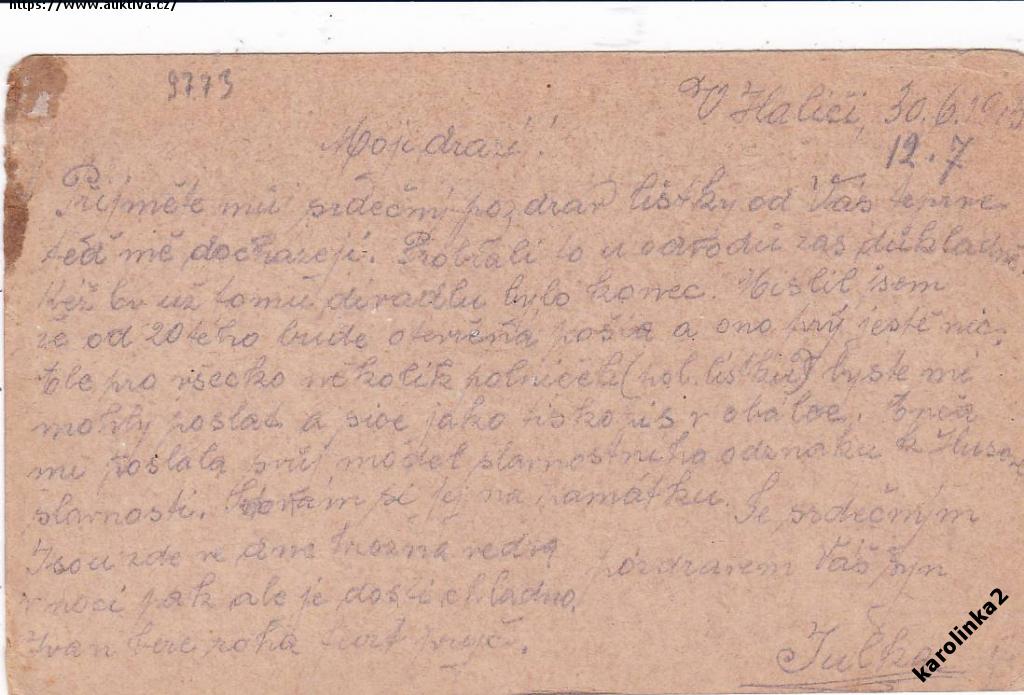 https://www.auktiva.cz/
9773
V Haliči, 30.6.
12.7
Moji drazí!
Přijměte můj srdečný pozdrav lístky od Vás teprve
teď mě docházejí. Probrali to u odvodu zas důkladně.
Kéž by už tomu divadlu bylo konec. Mislil jsem
že od 20tého bude otevřená pošta a ono prý ještě nic.
Ale pro všecko několik polníčéh (pol. lístků) byste mě
mohly poslat a sice jako tiskopis v obálce.
mi poslala svůj model slavnostního odznaku k Husově
slavnosti. si jej na památku. Se srdečným
Jsou zde ve dne hrozná vedra pozdravem Váš syn
v noci pak ale je dosti chladno.
Ivan bere roha furt vryč. Julka
karolinka2